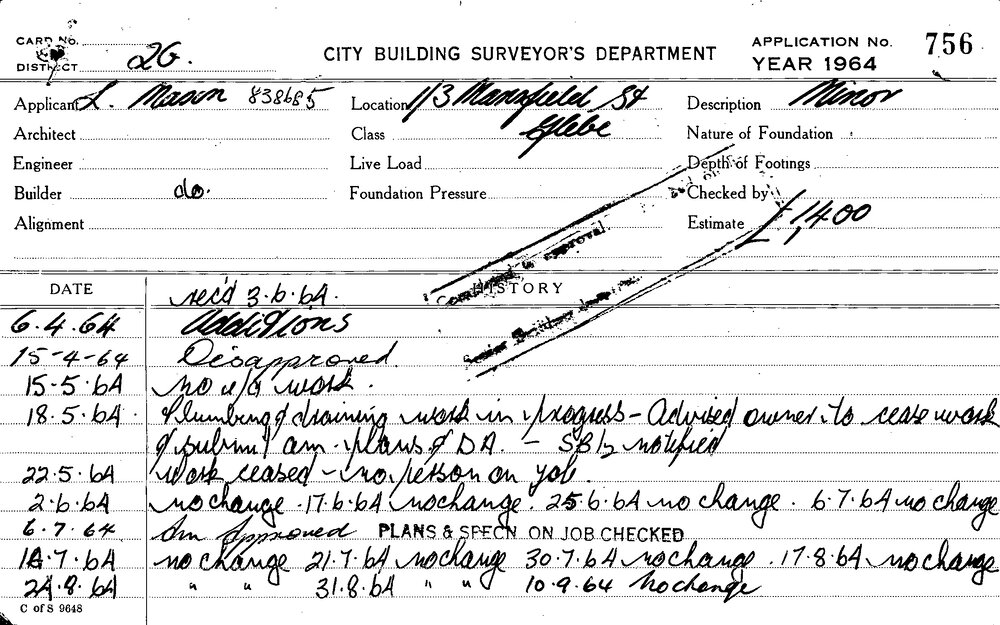 CARD No.
DISTRICT 26.
CITY BUILDING SURVEYOR'S DEPARTMENT
APPLICATION No. 756
YEAR 1964
Applicant L. Mason 838685
Location 1/3 Mansfield St
Glebe
Description Minor
Architect
Class
Nature of Foundation
Engineer
Live Load
Depth of Footings
Builder do.
Foundation Pressure
Checked by
Alignment
Estimate £1,400
approval
DATE
HISTORY
rec'd 3.6.64.
6.4.64 Additions
15-4-64 Disapproved.
15.5.64 no u/a work.
18.5.64. Plumbing & draining work in progress - Advised owner to cease work
& submit am. plans & DA. - notified
22.5.64 Work ceased - no person on job.
2.6.64 no change. 17.6.64 no change. 25.6.64 no change. 6.7.64 no change
6.7.64 Am Approved PLANS & SPECN ON JOB CHECKED
14.7.64 no change 21.7.64 no change 30.7.64 no change. 17.8.64 no change
24.8.64 " " 31.8.64 " " 10.9.64 No change
C of S 9648